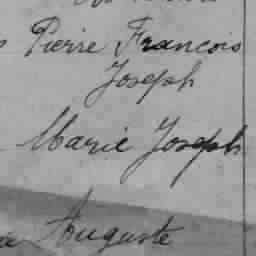 Pierre Francois
Joseph
Marie Joseph
Auguste